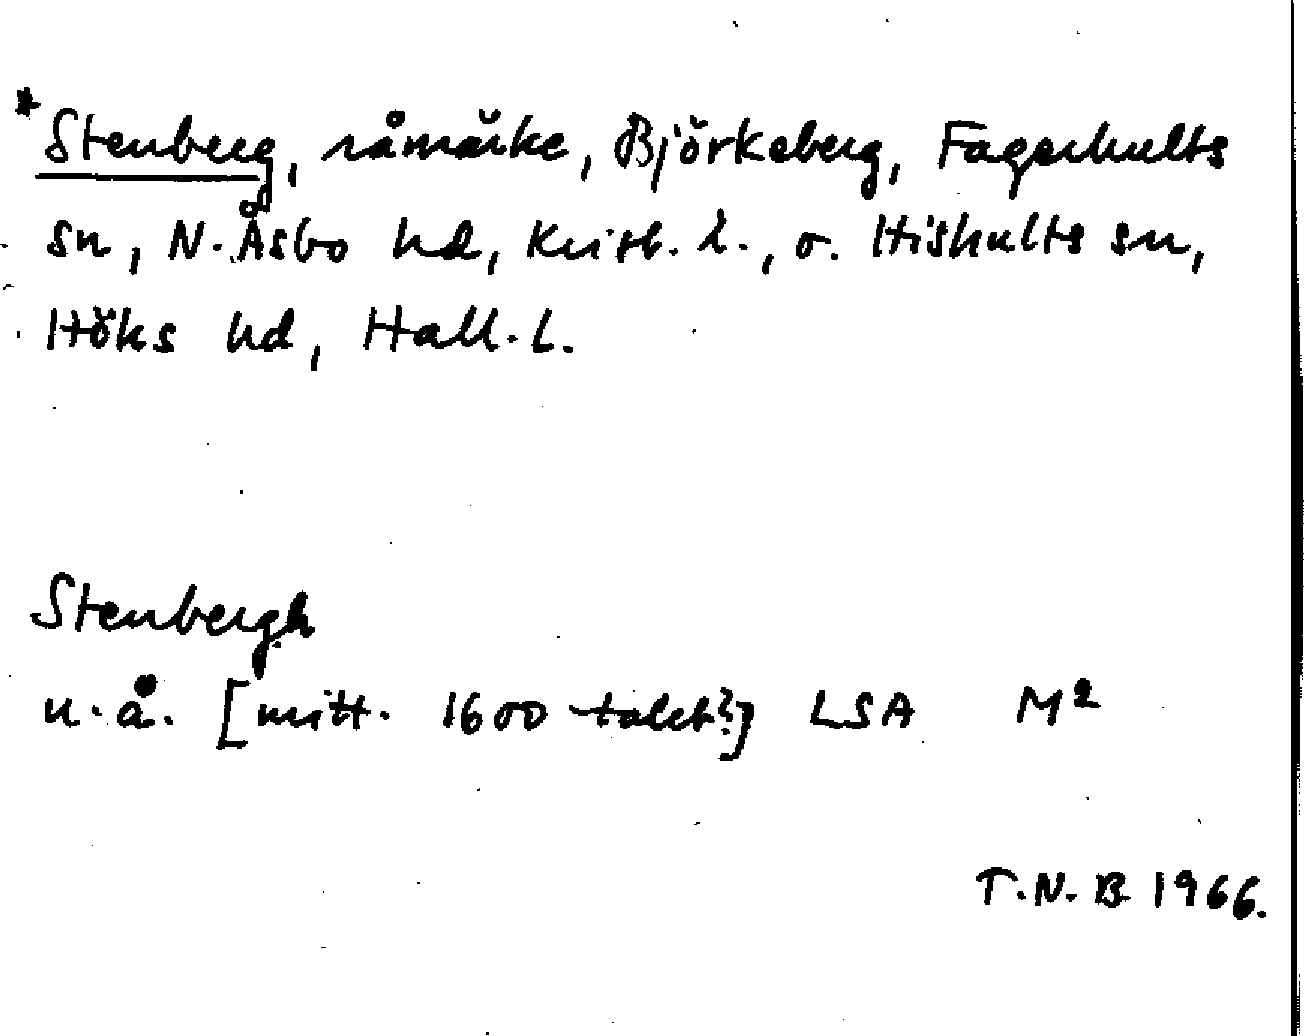 *Stenberg, råmärke, Björkeberg, Fagerhults
sn, N. Åsbo hd, Krist. l., o. Hishults sn,
Höks hd, Hall. l.
Stenbergh
u. å. [mitt. 1600-talet?] LSA M²
T.N.B 1966.